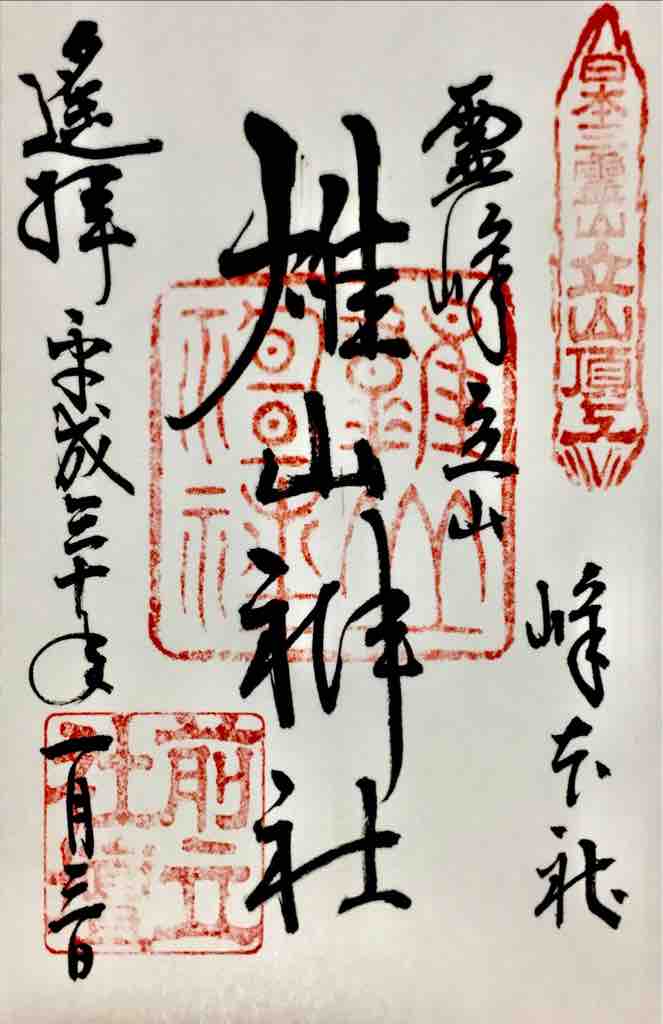 日本三霊山立山頂上
峰本社
霊峰立山
雄山神社
雄山神社
遙拝
平成三十年一月三日
前立社壇